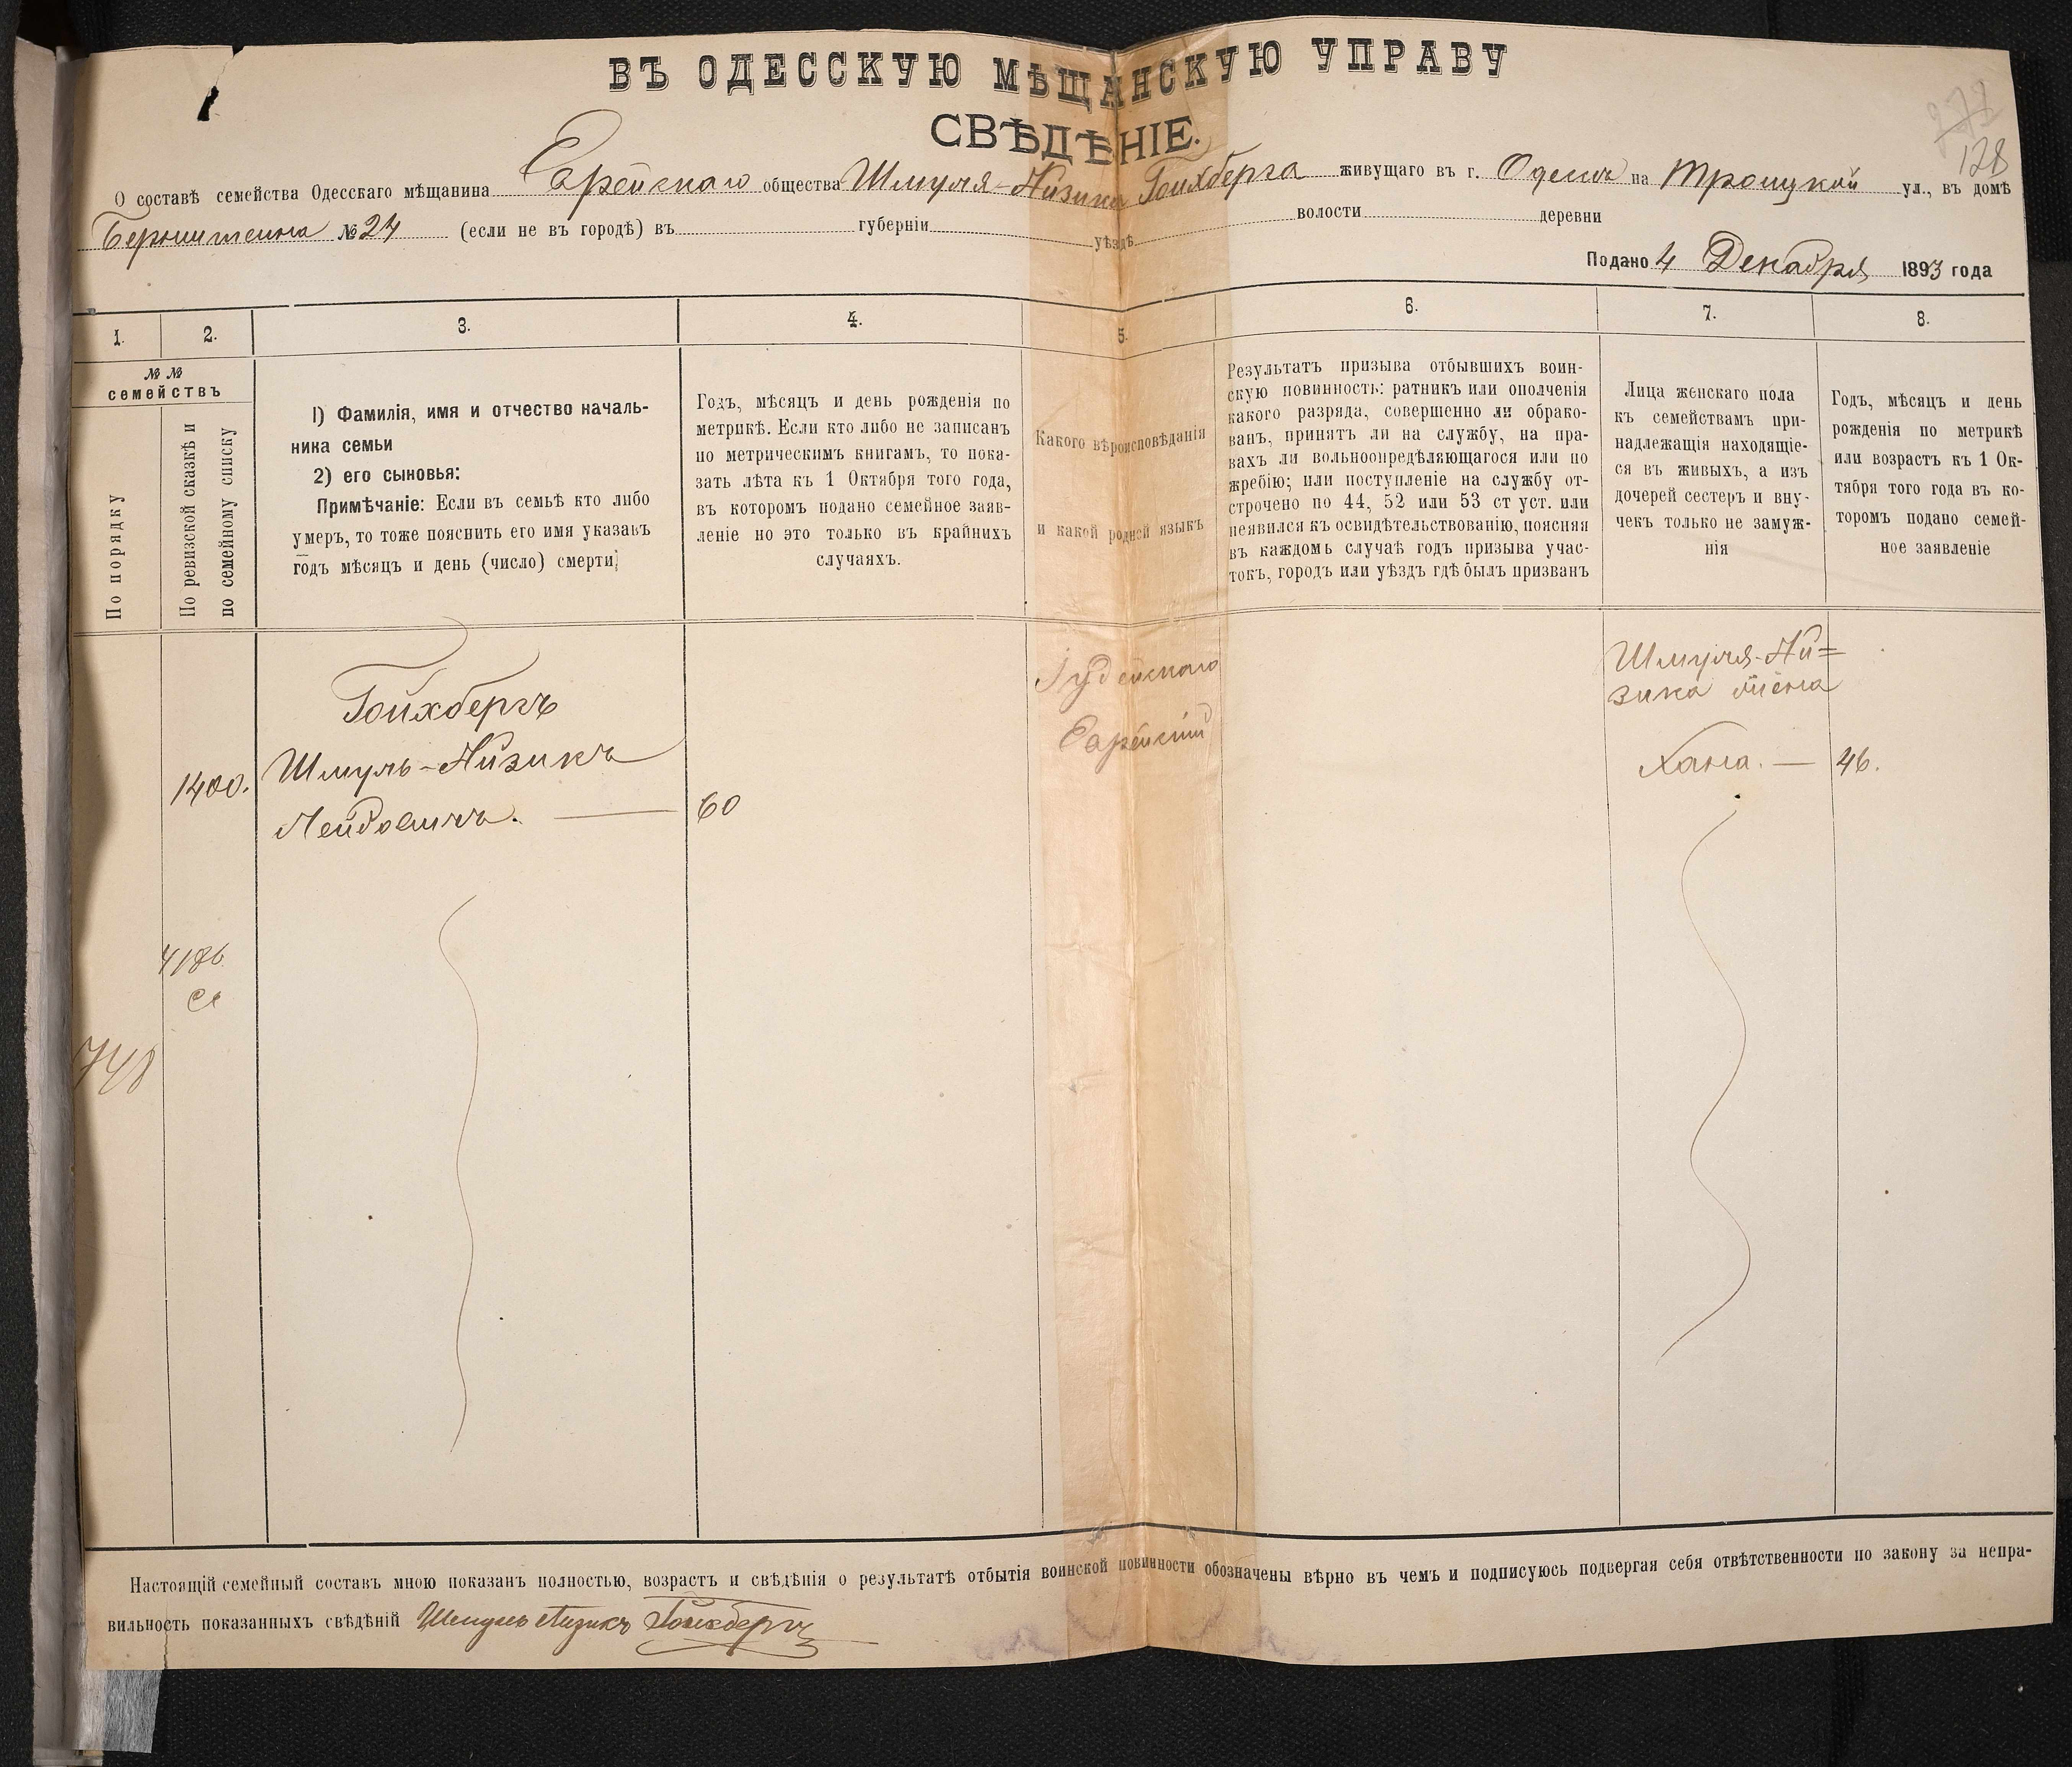 ВЪ ОДЕССКУЮ МѢЩАНСКУЮ УПРАВУ
СВѢДѢНІЕ.
128
О составѣ семейства Одесскаго мѣщанина Еврейскаго общества Шмуля-Айзика Гойхберга живущаго въ г. Одессѣ на Троицкой ул., въ домѣ
Бернштейна №24 (если не въ городѣ) въ губерніи уѣздѣ волости деревни
Подано 4 Декабря 1893 года
1. 2. 3. 4. 5. 6. 7. 8.
№ №
семействъ
По порядку
По ревизской сказкѣ и
по семейному списку
1) Фамилія, имя и отчество началь-
ника семьи
2) его сыновья:
Примѣчаніе: Если въ семьѣ кто либо
умеръ, то тоже пояснить его имя указавъ
годъ мѣсяцъ и день (число) смерти
Годъ, мѣсяцъ и день рожденія по
метрикѣ. Если кто либо не записанъ
по метрическимъ книгамъ, то пока-
зать лѣта къ 1 Октября того года,
въ которомъ подано семейное заяв-
леніе но это только въ крайнихъ
случаяхъ.
Какого вѣроисповѣданія
и какой родней языкъ
Результатъ призыва отбывшихъ воин-
скую повинность: ратникъ или ополченія
какого разряда, совершенно ли обрако-
ванъ, принятъ ли на службу, на пра-
вахъ ли вольноопредѣляющагося или по
жребію; или поступленіе на службу от-
строчено по 44, 52 или 53 ст уст. или
неявился къ освидѣтельствованію, поясняя
въ каждомъ случаѣ годъ призыва учас-
токъ, городъ или уѣздъ гдѣ былъ призванъ
Лица женскаго пола
къ семействамъ при-
надлежащія находящіе-
ся въ живыхъ, а изъ
дочерей сестеръ и вну-
чекъ только не замуж-
нія
Годъ, мѣсяцъ и день
рожденія по метрикѣ
или возрастъ къ 1 Ок-
тября того года въ ко-
торомъ подано семей-
ное заявленіе
1400.
Гойхбергъ
Шмуль-Айзикъ
Лейбовичъ. —
60
Іудейскаго
Еврейскій
Шмуля-Ай=
зика жена
Хана. — 46.
Настоящій семейный составъ мною показанъ полностью, возрастъ и свѣдѣнія о результатѣ отбытія воинской повинности обозначены вѣрно въ чемъ и подписуюсь подвергая себя отвѣтственности по закону за непра-
вильность показанныхъ свѣдѣній Шмуль Айзикъ Гойхбергъ